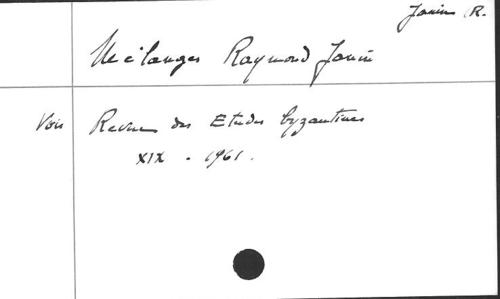 Janin R.
Mélanges Raymond Janin
Voir Revue des Etudes byzantines
XIX - 1961.